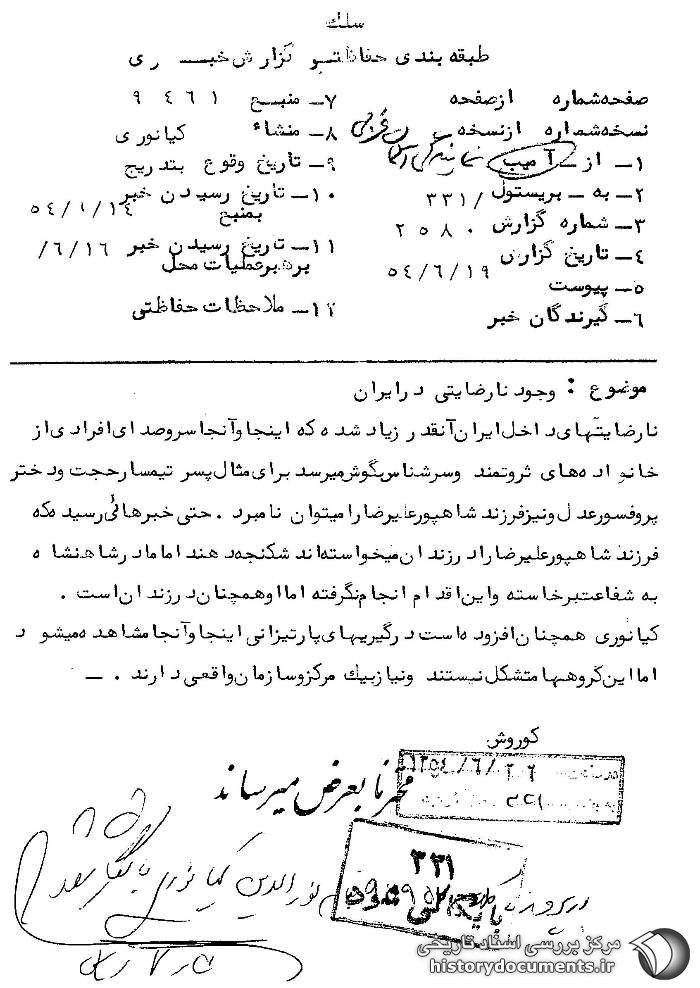 سلك
طبقه بندی حفاظتی گزارش خبری
صفحه شماره از صفحه
نسخه شماره از نسخه
۱ـ از ـ آ صب نمایندگی
۲ـ به ـ بریستول / ۳۳۱
۳ـ شماره گزارش ۲۵۸۰
۴ـ تاریخ گزارش ۵۴/۶/۱۹
۵ـ پیوست
۶ـ گیرندگان خبر
۷ـ منبع ۹۴۶۱
۸ـ منشاء کیانوری
۹ـ تاریخ وقوع بتدریج
۱۰ـ تاریخ رسیدن خبر بمنبع ۵۴/۱/۱۴
۱۱ـ تاریخ رسیدن خبر ۶/۱۶/
برهبر عملیات محل
۱۲ـ ملاحظات حفاظتی
موضوع : وجود نارضایتی در ایران
نارضایتیهای داخل ایران آنقدر زیاد شده که اینجا وآنجا سروصدای افرادی از
خانواده های ثروتمند وسرشناس بگوش میرسد برای مثال پسر تیمسار حجت ودختر
پروفسور عدل ونیز فرزند شاهپور علیرضا را میتوان نام برد . حتی خبرهائی رسیده که
فرزند شاهپور علیرضا را در زندان میخواسته اند شکنجه دهند اما مادر شاهنشاه
به شفاعت برخاسته واین اقدام انجام نگرفته اما او همچنان در زندان است .
کیانوری همچنان افزوده است درگیریهای پارتیزانی اینجا وآنجا مشاهده میشود
اما این گروهها متشکل نیستند ونیاز بیك مرکز وسازمان واقعی دارند . ـ
کوروش
۱۳۵۴/۶/۲۶
محترما بعرض میرساند
۳۳۱
بایگانی شود
نورالدین کیانوری
مرکز بررسی اسناد تاریخی
historydocuments.ir